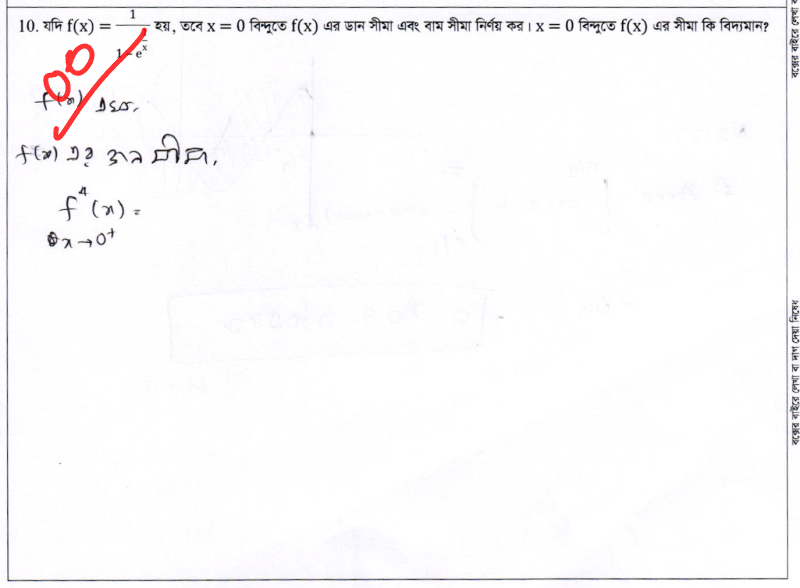 10. যদি f(x) = 1/(1-e^(1/x)) হয়, তবে x = 0 বিন্দুতে f(x) এর ডান সীমা এবং বাম সীমা নির্ণয় কর। x = 0 বিন্দুতে f(x) এর সীমা কি বিদ্যমান?
00
f(x)
f(x) এর ডান সীমা,
f⁴(x) =
x→0⁺
বক্সের বাইরে লেখা ব
বক্সের বাইরে লেখা বা দাগ দেয়া নিষেধ